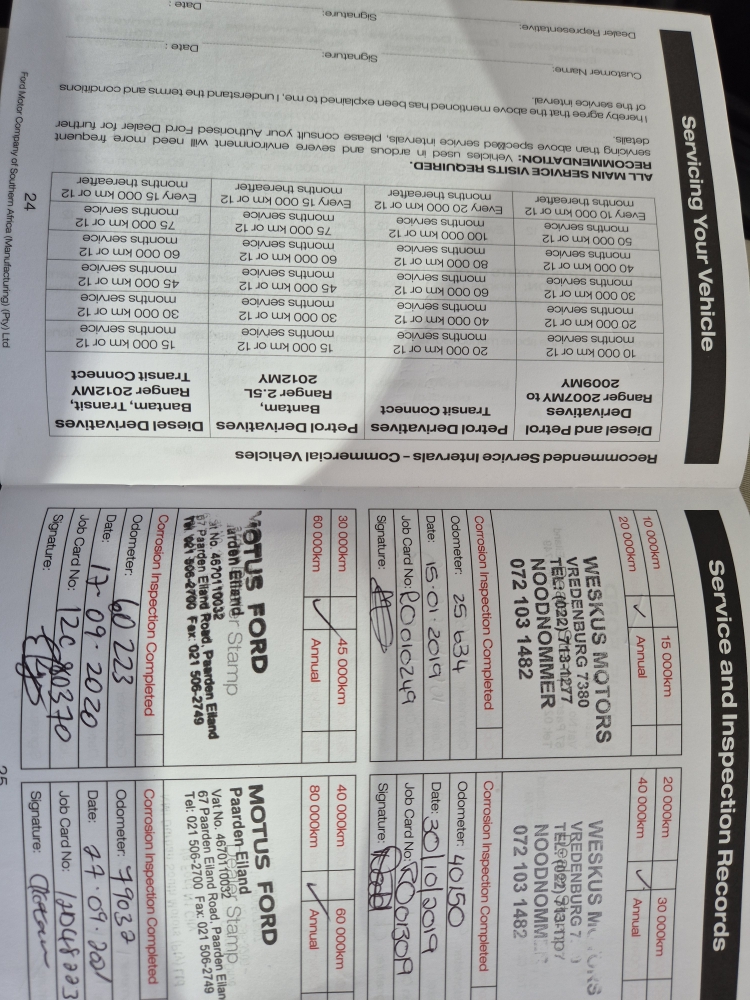 Servicing Your Vehicle
Recommended Service Intervals – Commercial Vehicles
Diesel and Petrol Derivatives Ranger 2007MY to 2009MY
Petrol Derivatives Transit Connect
Petrol Derivatives Bantam, Ranger 2.5L 2012MY
Diesel Derivatives Bantam, Transit, Ranger 2012MY Transit Connect
10 000 km or 12 months service
20 000 km or 12 months service
15 000 km or 12 months service
15 000 km or 12 months service
20 000 km or 12 months service
40 000 km or 12 months service
30 000 km or 12 months service
30 000 km or 12 months service
30 000 km or 12 months service
60 000 km or 12 months service
45 000 km or 12 months service
45 000 km or 12 months service
40 000 km or 12 months service
80 000 km or 12 months service
60 000 km or 12 months service
60 000 km or 12 months service
50 000 km or 12 months service
100 000 km or 12 months service
75 000 km or 12 months service
75 000 km or 12 months service
Every 10 000 km or 12 months thereafter
Every 20 000 km or 12 months thereafter
Every 15 000 km or 12 months thereafter
Every 15 000 km or 12 months thereafter
ALL MAIN SERVICE VISITS REQUIRED.
RECOMMENDATION: Vehicles used in ardous and severe environment will need more frequent
servicing than above specified service intervals, please consult your Authorised Ford Dealer for further
details.
I hereby agree that the above mentioned has been explained to me, I understand the terms and conditions
of the service interval.
Customer Name: Signature: Date :
Dealer Representative: Signature: Date :
24
Ford Motor Company of Southern Africa (Manufacturing) (Pty) Ltd
Service and Inspection Records
10 000km
15 000km
20 000km ✓ Annual
WESKUS MOTORS
VREDENBURG 7380
TEL: (022) 713-1277
NOODNOMMER
072 103 1482
Corrosion Inspection Completed
Odometer: 25 634
Date: 15·01·2019
Job Card No: RO010249
Signature:
20 000km
30 000km
40 000km ✓ Annual
WESKUS
VREDENBURG 7
NOODNOMM
072 103 1482
Corrosion Inspection Completed
Odometer: 40150
Date: 30/10/2019
Job Card No:
Signature:
30 000km
45 000km
60 000km ✓ Annual
MOTUS FORD
Paarden Eiland
Dealer Stamp
Vat No. 4670110032
67 Paarden Eiland Road, Paarden Eiland
Tel: 021 506-2700 Fax: 021 506-2749
Corrosion Inspection Completed
Odometer: 60 223
Date: 17·09·2020
Job Card No: 12C80370
Signature:
40 000km
60 000km
80 000km ✓ Annual
MOTUS FORD
Paarden-Eiland
Dealer Stamp
Vat No. 4670110032
67 Paarden Eiland Road, Paarden Eilan
Tel: 021 506-2700 Fax: 021 506-2749
Corrosion Inspection Completed
Odometer: 79037
Date: 27·09·
Job Card No:
Signature:
25